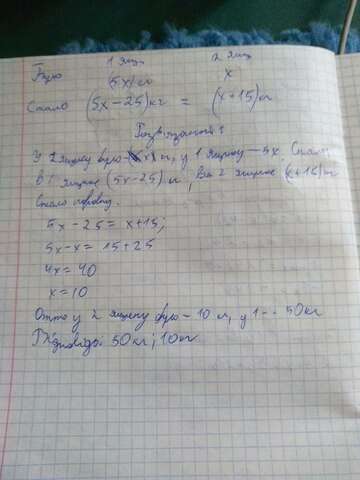 1 ящ. 2 ящ.
Було 5x кг x
Стало (5x-25) кг = (x+15) кг
Розв'язання
У 2 ящику було - x кг, у 1 ящику - 5x. Стало
в 1 ящику (5x-25) кг, в 2 ящику (x+15) кг
Стало порівну.
5x-25 = x+15;
5x-x = 15+25
4x = 40
x = 10
Отже у 2 ящику було - 10 кг, у 1 - 50 кг
Відповідь: 50 кг; 10 кг